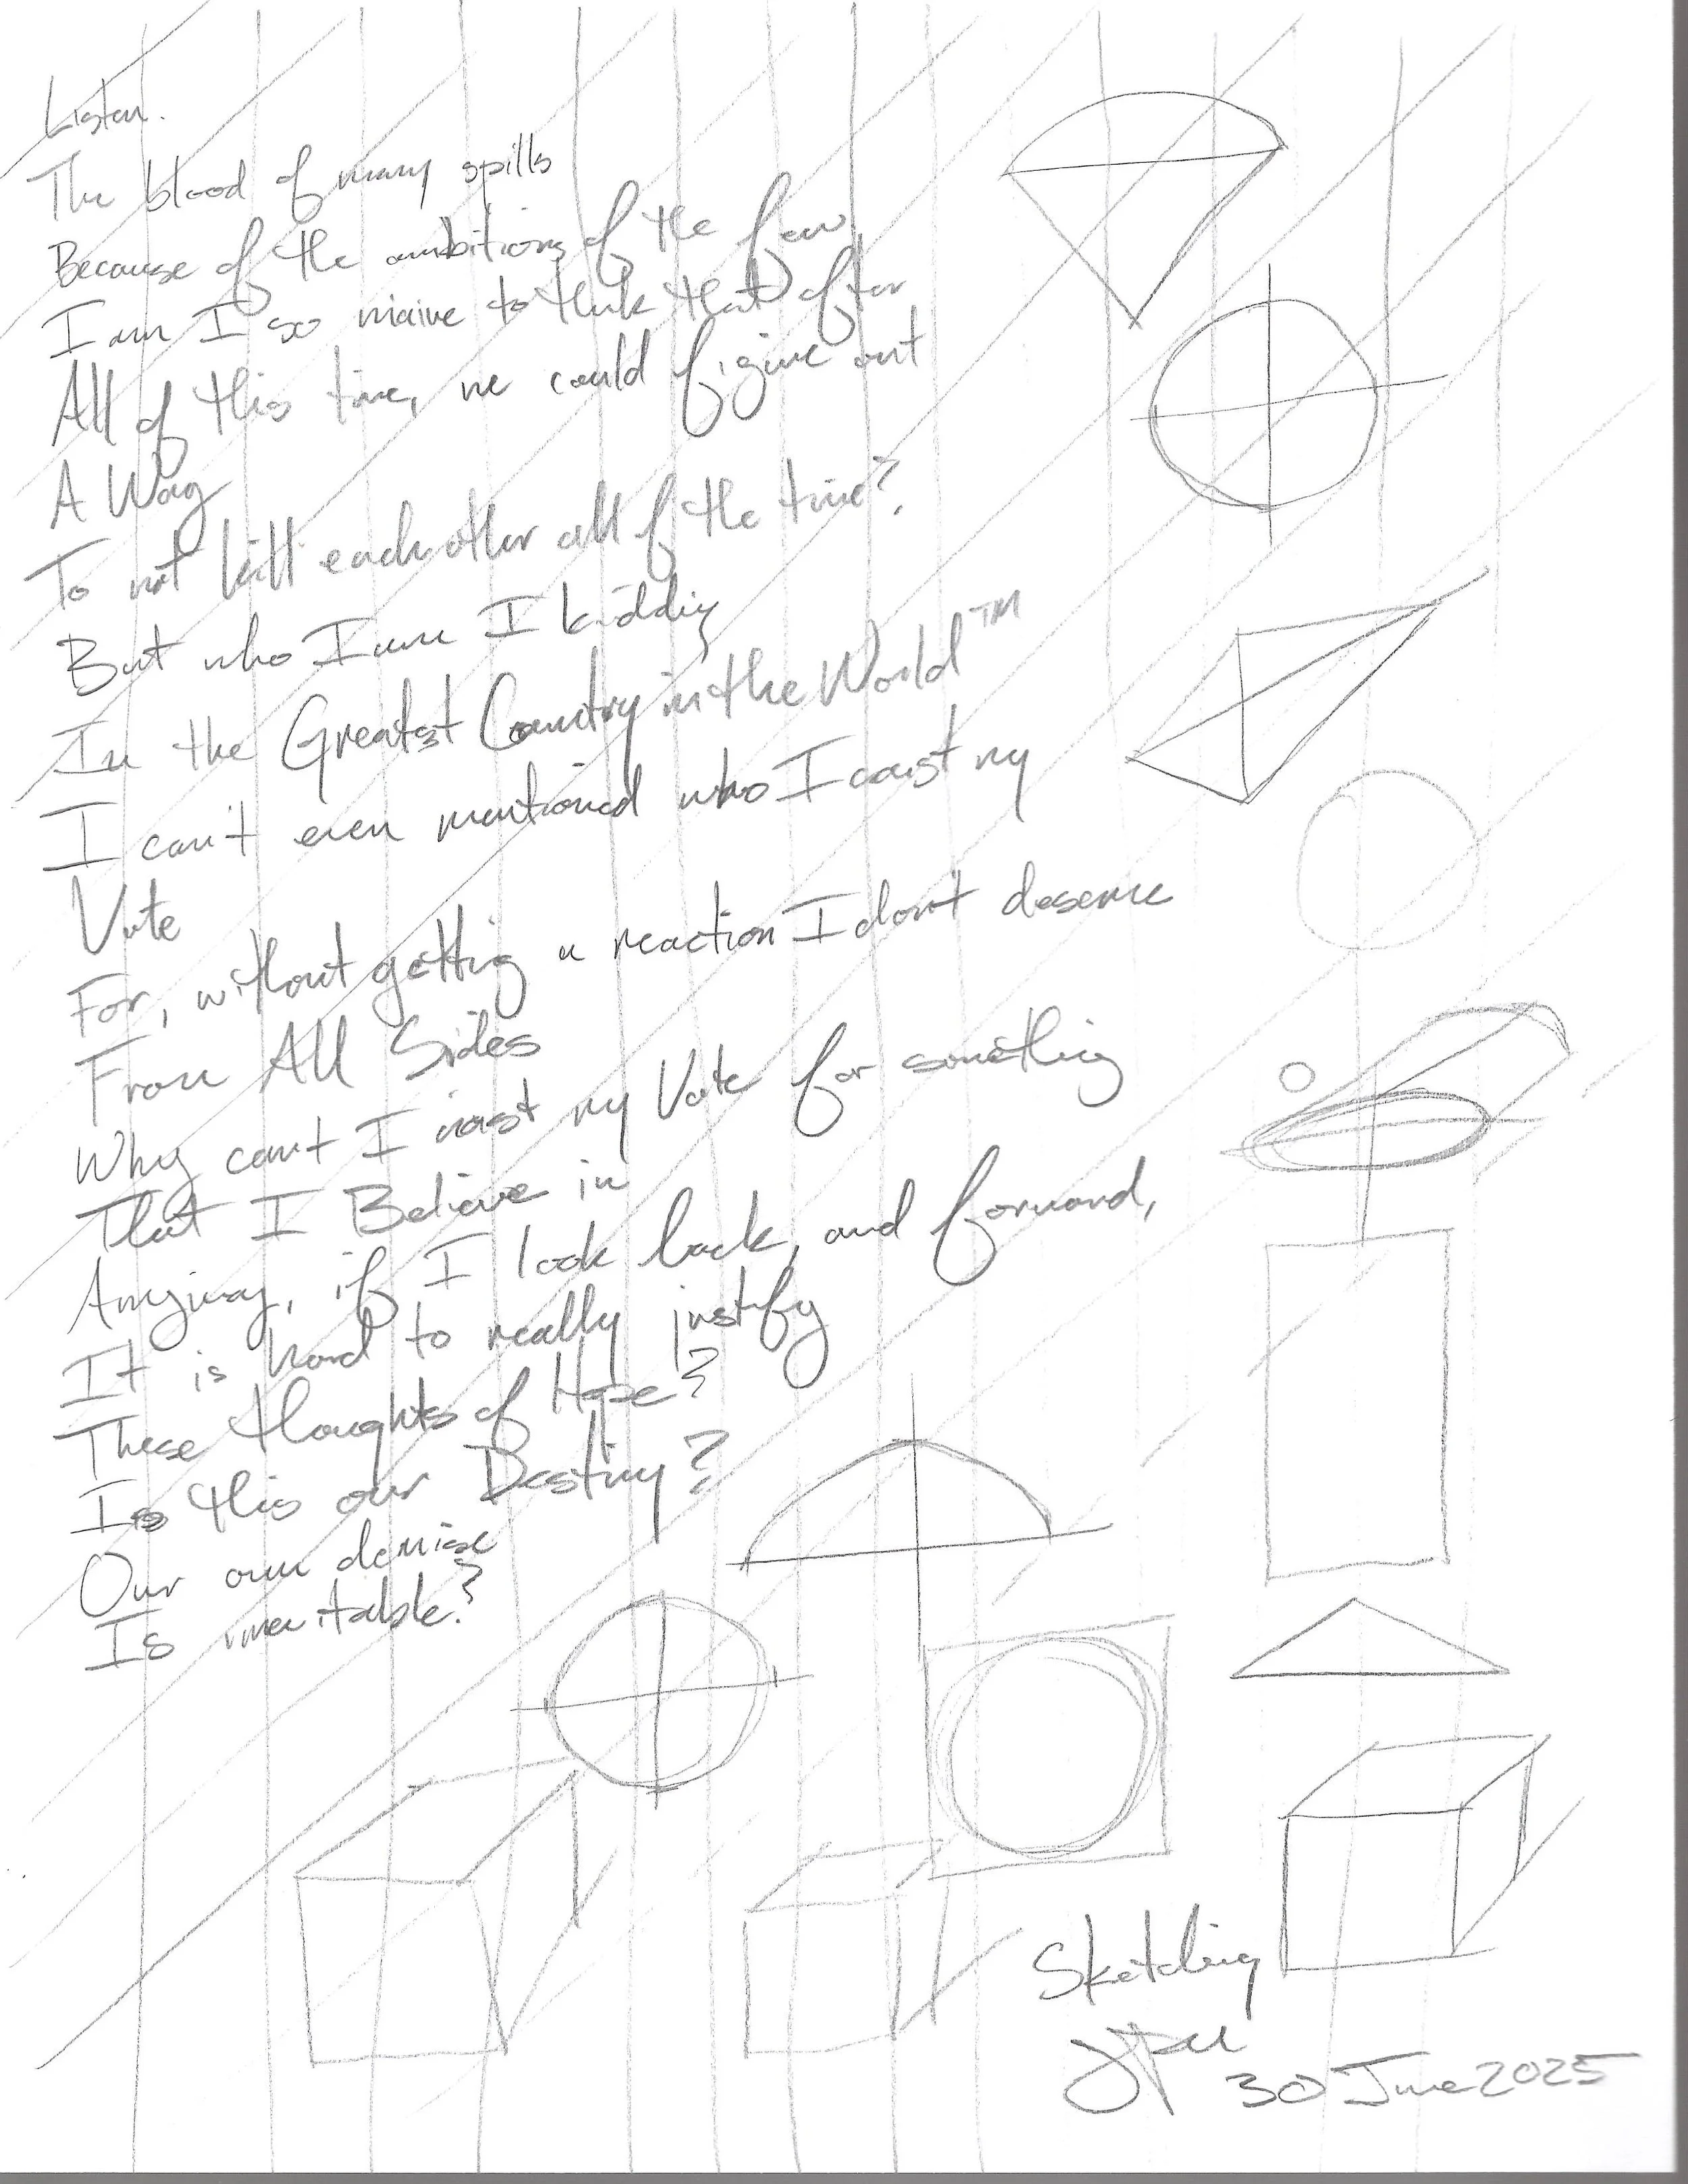 Listen.
The blood of many spills
Because of the ambitions of the few
I am I so niaive to think that after
All of this time, we could figure out
A Way
To not kill each other all of the time?
But who I am I kidding
In the Greatest Country in the World™
I can't even mentioned who I cast my
Vote
For, without getting a reaction I don't deserve
From All Sides
Why can't I cast my Vote for something
That I Believe in
Anyway, if I look back, and forward,
It is hard to really justify
These thoughts of Hope?
Is this our Destiny?
Our own demise
Is inevitable?
Sketching
30 June 2025